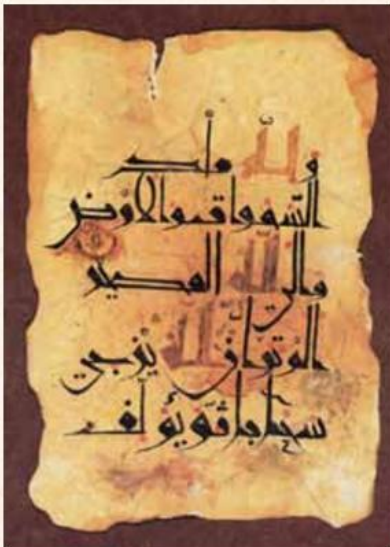 ولله ملك
السموات والأرض
والى الله المصير
الم تر ان الله يزجي
سحابا ثم يؤلف